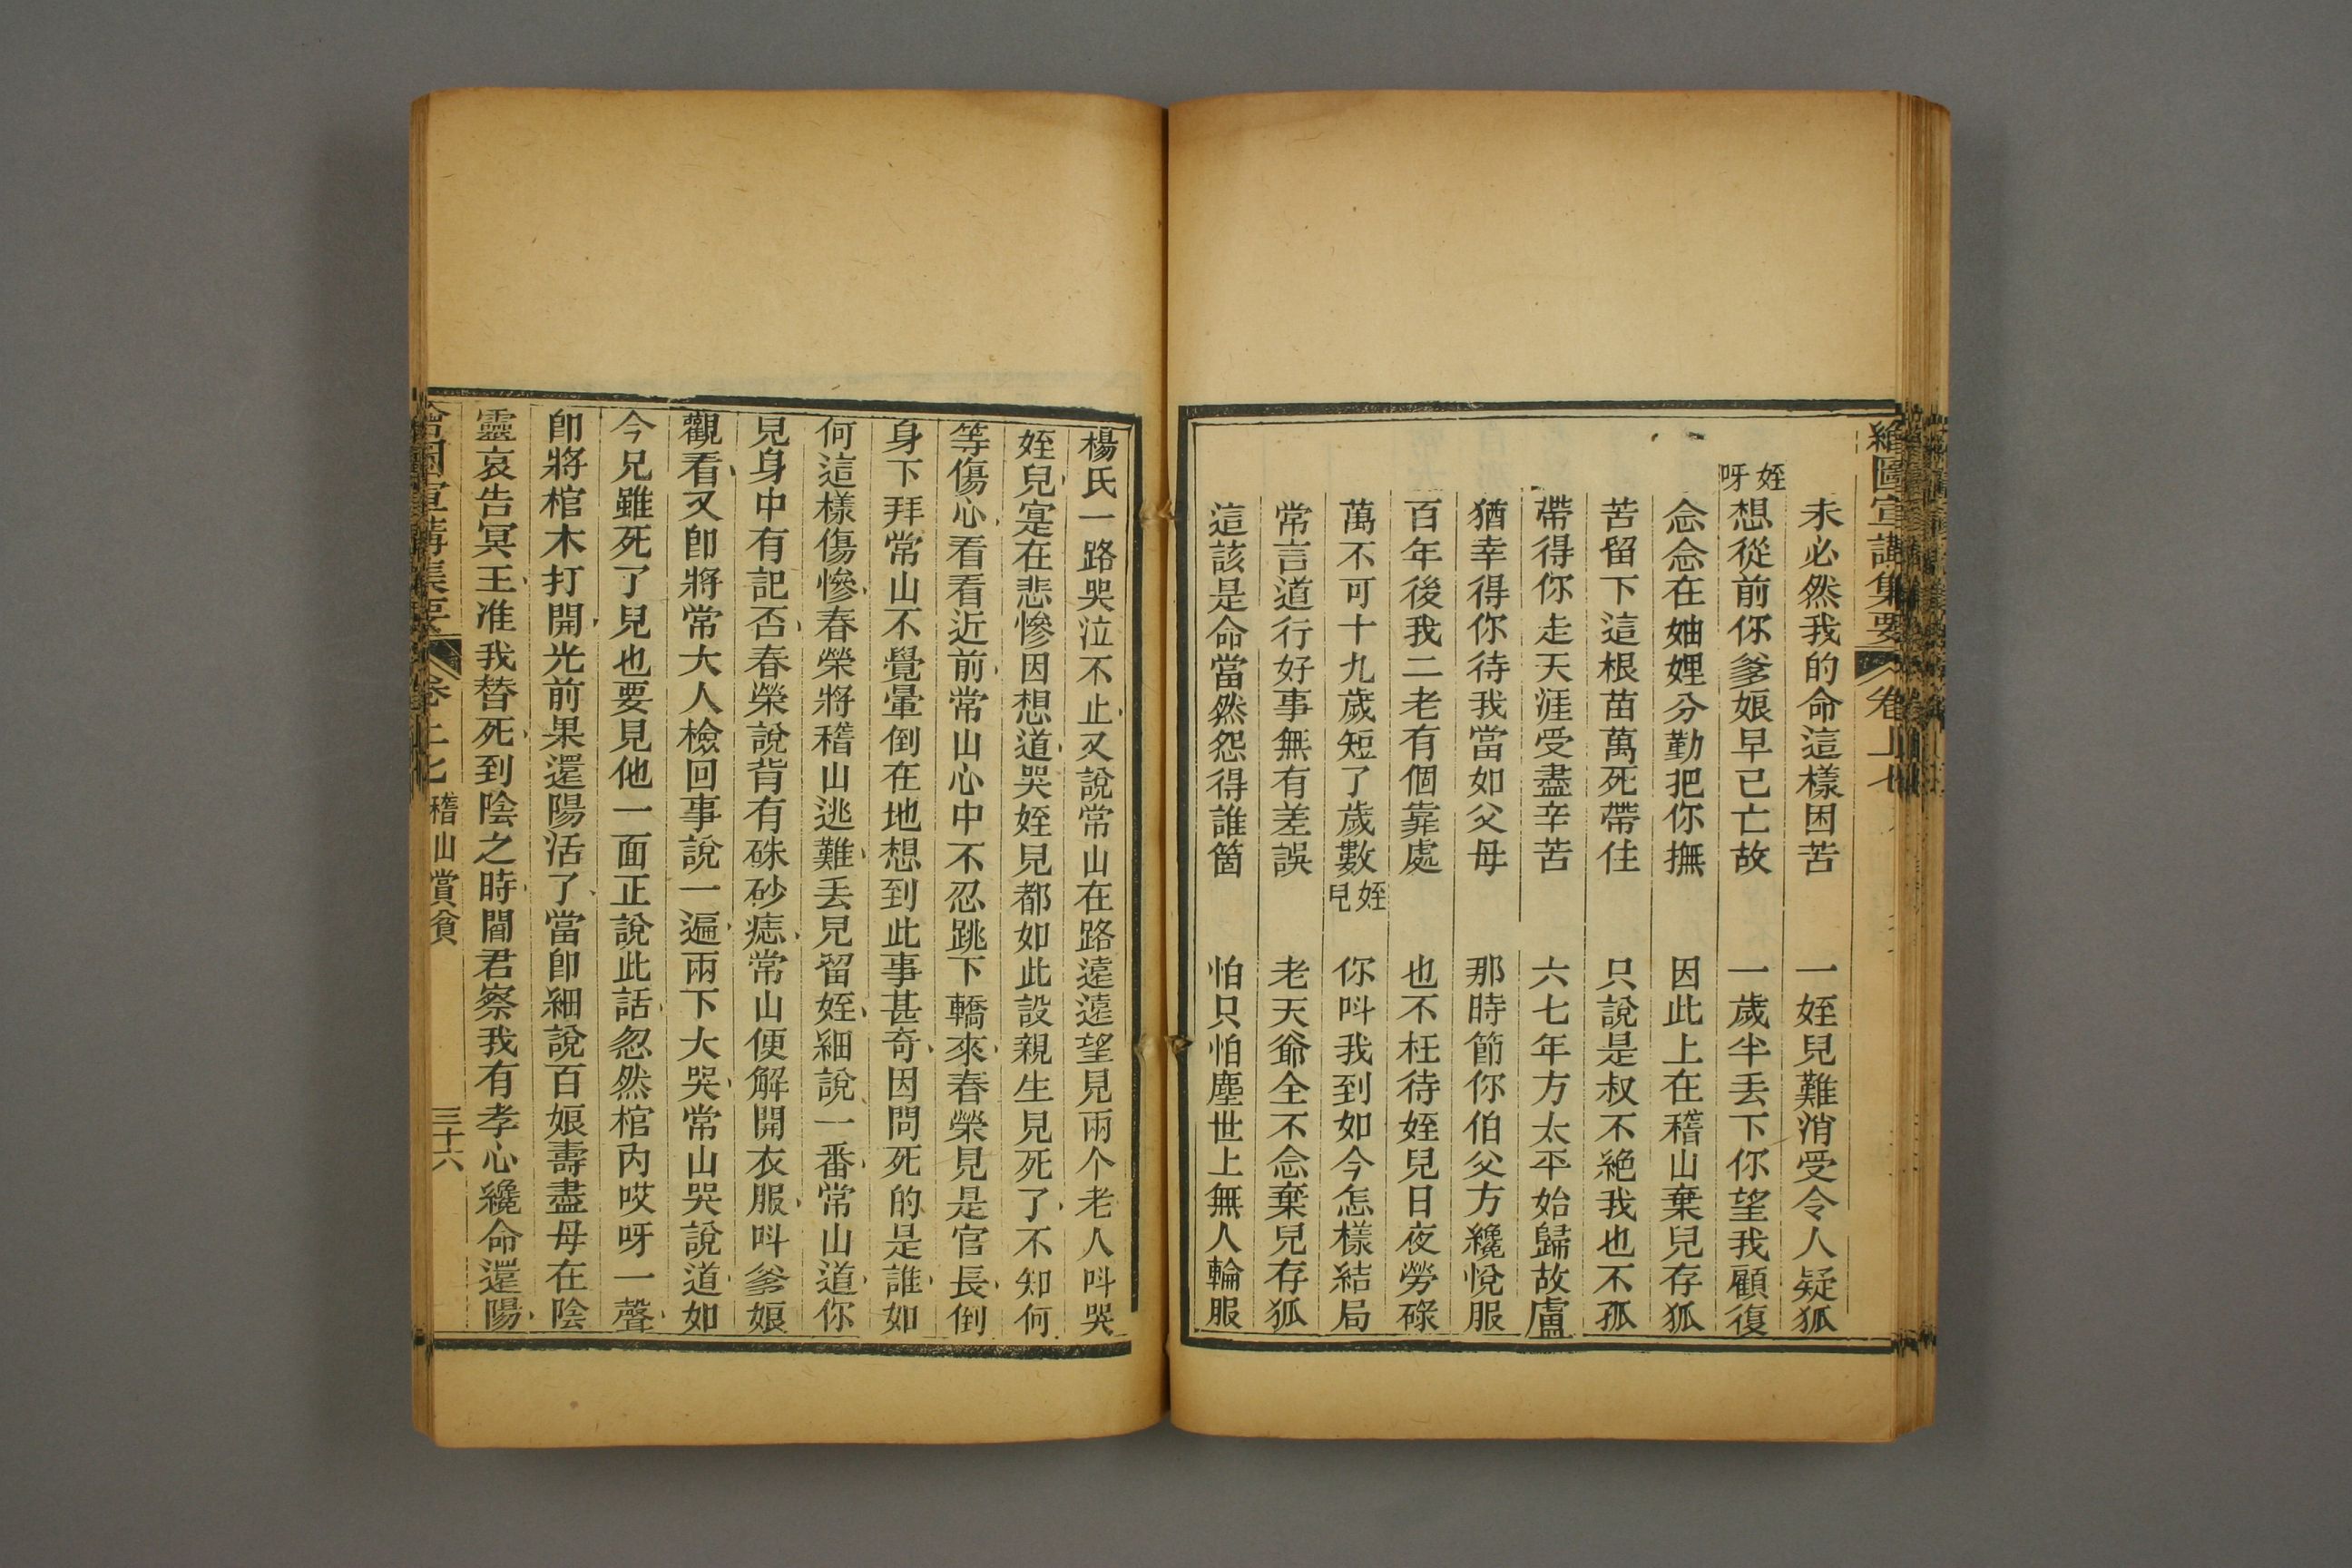 繪圖宣講集要 卷上七
未必然我的命這樣困苦 一姪兒難消受令人疑狐
姪呀想從前你爹娘早已亡故 一歲半丟下你望我顧復
念念在妯娌分勤把你撫 因此上在稽山棄兒存狐
苦留下這根苗萬死帶住 只說是叔不絕我也不孤
帶得你走天涯受盡辛苦 六七年方太平始歸故廬
猶幸得你待我當如父母 那時節你伯父方纔悅服
百年後我二老有個靠處 也不枉待姪兒日夜勞碌
萬不可十九歲短了歲數 姪兒你呌我到如今怎樣結局
常言道行好事無有差誤 老天爺全不念棄兒存狐
這該是命當然怨得誰箇 怕只怕塵世上無人輪服
楊氏一路哭泣不止又說常山在路遠遠望見兩个老人呌哭
姪兒寔在悲慘因想道哭姪兒都如此設親生兒死了不知何
等傷心看看近前常山心中不忍跳下轎來春榮見是官長倒
身下拜常山不覺暈倒在地想到此事甚奇因問死的是誰如
何這樣傷慘春榮將稽山逃難丟兒留姪細說一番常山道你
兒身中有記否春榮說背有硃砂痣常山便解開衣服呌爹娘
觀看又卽將常大人檢回事說一遍兩下大哭常山哭說道如
今兄雖死了兒也要見他一面正說此話忽然棺內哎呀一聲
卽將棺木打開光前果還陽活了當卽細說百娘壽盡母在陰
靈哀告冥王准我替死到陰之時閻君察我有孝心纔命還陽
繪圖宣講集要 卷上七 稽山賞貧 三十六